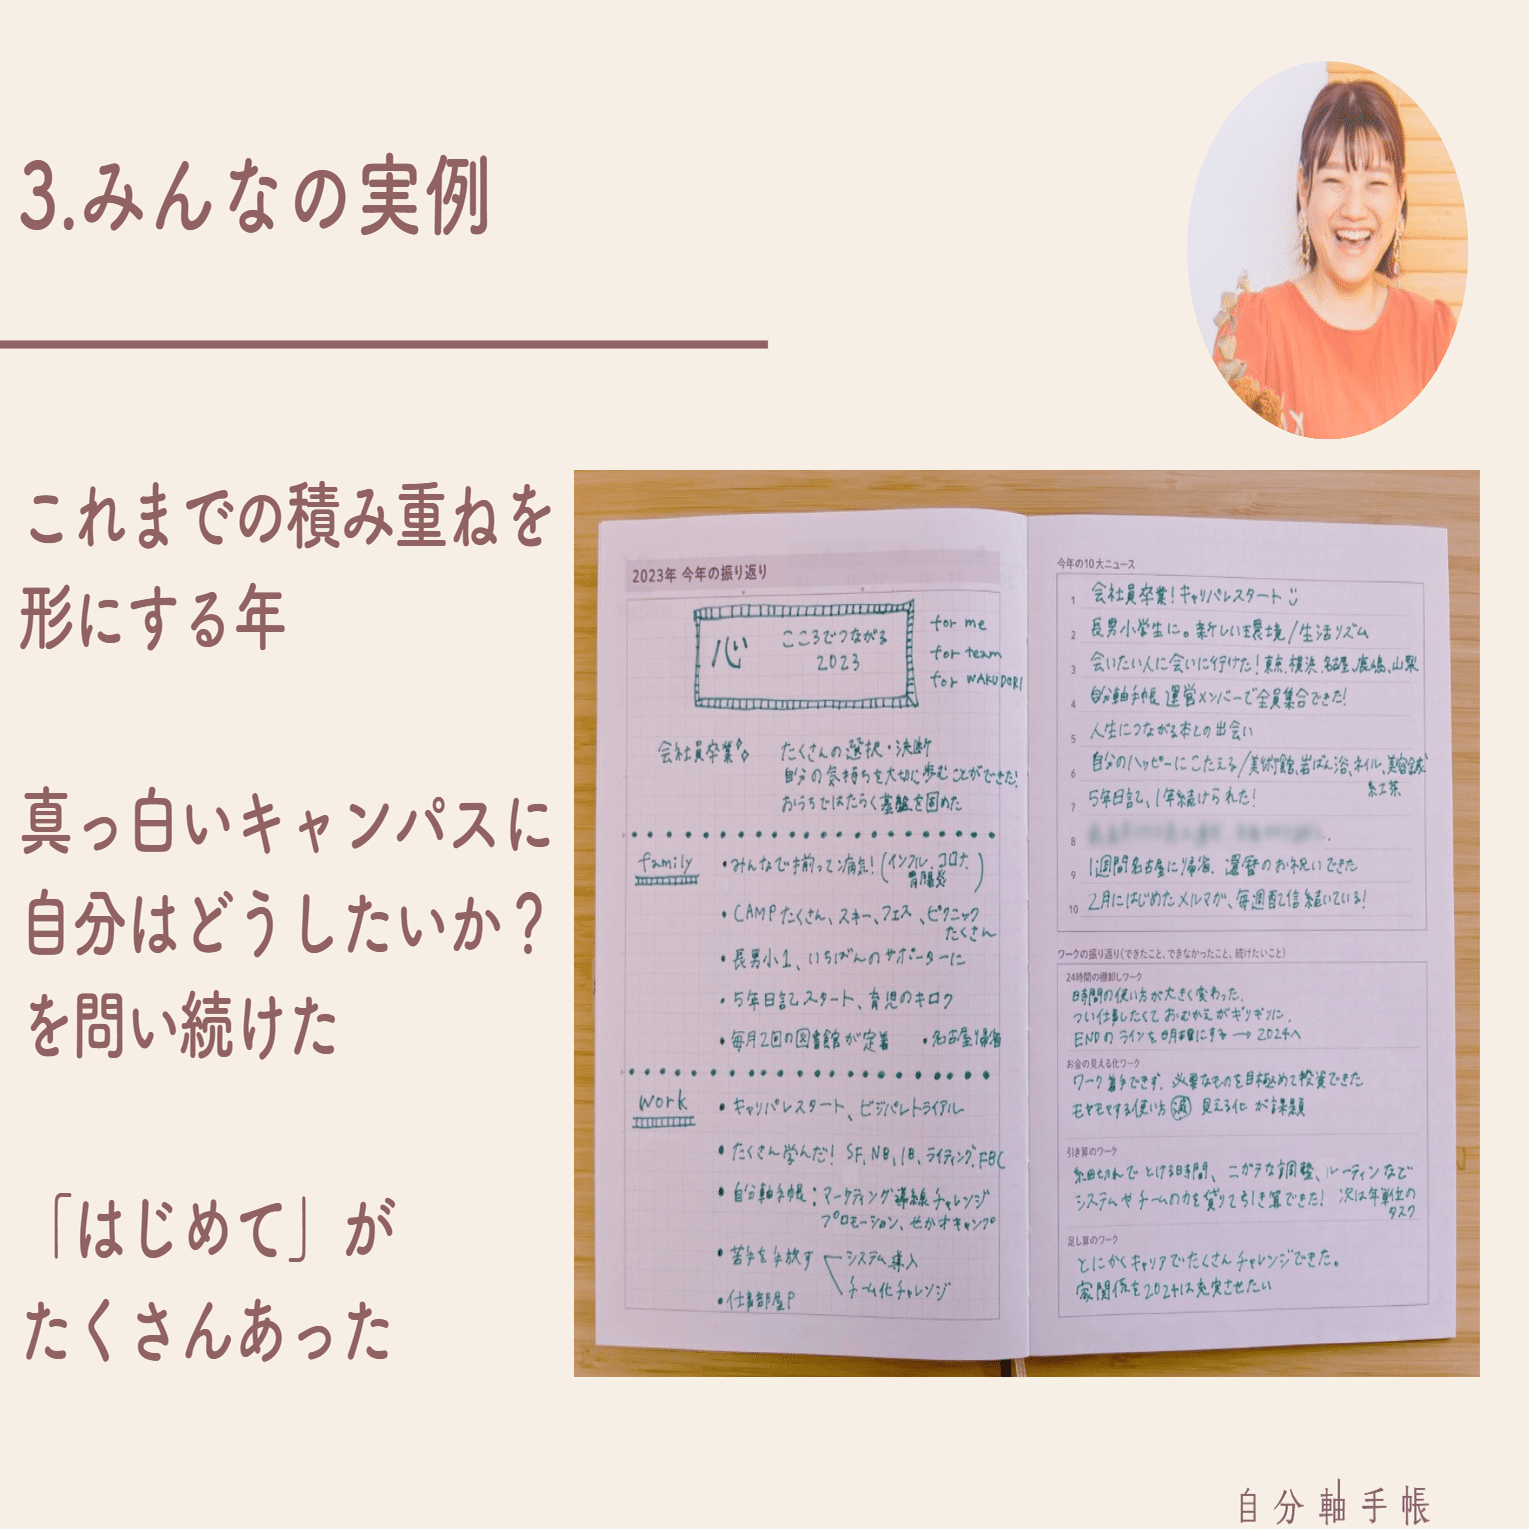 3.みんなの実例
これまでの積み重ねを
形にする年
真っ白いキャンパスに
自分はどうしたいか？
を問い続けた
「はじめて」が
たくさんあった
2023年 今年の振り返り
心
こころでつながる
2023
for me
for team
for WAKUDORI
会社員卒業
たくさんの選択・決断
自分の気持ちを大切に歩むことができた!
おうちではたらく基盤を固めた
family
・みんなで揃って病気! (インフル、コロナ、胃腸炎)
・CAMPたくさん、スキー、フェス、ピクニックたくさん
・長男小1、いちばんのサポーターに
・5年日記スタート、育児のキロク
・毎月2回の図書館が定着 ・名古屋帰省
work
・キャリパレスタート、ビジパレトライアル
・たくさん学んだ! SF、NB、IB、ライティング、FBC
・自分軸手帳：マーケティング導線チャレンジ
プロモーション、せかオキャンプ
・苦手を手放す
システム導入
チーム化チャレンジ
・仕事部屋P
今年の10大ニュース
1 会社員卒業! キャリパレスタート
2 長男小学生に。新しい環境/生活リズム
3 会いたい人に会いに行けた! 東京、横浜、名古屋、鹿嶋、山梨
4 自分軸手帳 運営メンバーで全員集合できた!
5 人生につながる本との出会い
6 自分のハッピーにこたえる/美術館、岩ばん浴、ネイル、美容鍼
紅茶
7 5年日記、1年続けられた!
8
9 1週間名古屋に帰省、還暦のお祝いできた
10 2月にはじめたメルマガ、毎週配信続いている!
ワークの振り返り(できたこと、できなかったこと、続けたいこと)
24時間の棚卸しワーク
時間の使い方が大きく変わった。
つい仕事したくておむかえがギリギリに。
ENDのラインを明確にする → 2024へ
お金の見える化ワーク
ワーク着手できず。必要なものを見極めて投資できた
モヤモヤする使い方 減 見える化が課題
引き算のワーク
細切れでとける時間、ニガテな調整、ルーティンなど
システムやチームの力を借りて引き算できた! 次は年単位の
タスク
足し算のワーク
とにかくキャリアでたくさんチャレンジできた。
家関係を2024は充実させたい
自分軸手帳